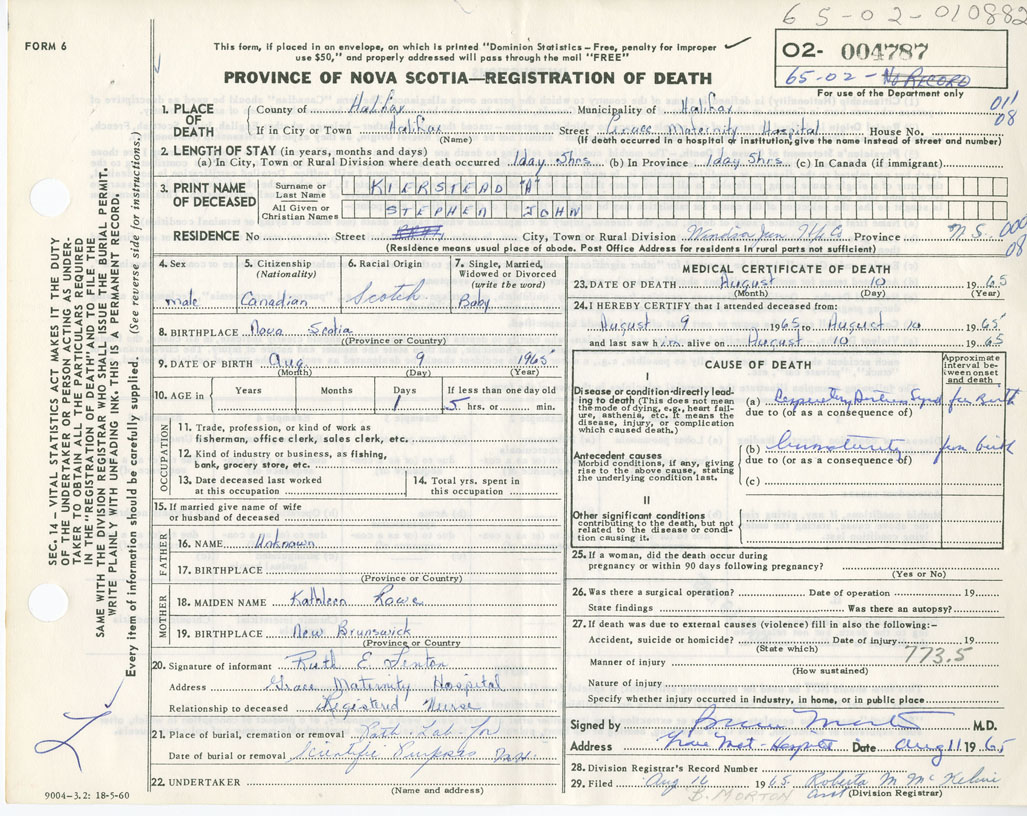 65-02-010882
FORM 6
This form, if placed in an envelope, on which is printed "Dominion Statistics – Free, penalty for improper
use $50," and properly addressed will pass through the mail "FREE"
02- 004787
65-02- No RECORD
For use of the Department only
PROVINCE OF NOVA SCOTIA—REGISTRATION OF DEATH
011
08
1. PLACE OF DEATH
County of Halifax Municipality of Halifax
If in City or Town Halifax Street Grace Maternity Hospital House No.
(Name) (If death occurred in a hospital or institution, give the name instead of street and number)
2. LENGTH OF STAY (in years, months and days)
(a) In City, Town or Rural Division where death occurred 1 day 5 hrs. (b) In Province 1 day 5 hrs. (c) In Canada (if immigrant)
3. PRINT NAME OF DECEASED
Surname or Last Name KIERSTEAD "A"
All Given or Christian Names STEPHEN JOHN
RESIDENCE No Street City, Town or Rural Division Windsor Jcn Province N.S. 000
08
(Residence means usual place of abode. Post Office Address for residents in rural parts is sufficient)
4. Sex male
5. Citizenship (Nationality) Canadian
6. Racial Origin Scotch
7. Single, Married, Widowed or Divorced (write the word) Baby
8. BIRTHPLACE Nova Scotia
(Province or Country)
9. DATE OF BIRTH Aug. 9 1965
(Month) (Day) (Year)
10. AGE in Years Months Days 1 If less than one day old 5 hrs. or min.
OCCUPATION
11. Trade, profession, or kind of work as
fisherman, office clerk, sales clerk, etc.
12. Kind of industry or business, as fishing,
bank, grocery store, etc.
13. Date deceased last worked at this occupation
14. Total yrs. spent in this occupation
15. If married give name of wife
or husband of deceased
FATHER
16. NAME Unknown
17. BIRTHPLACE
(Province or Country)
MOTHER
18. MAIDEN NAME Kathleen Rowe
19. BIRTHPLACE New Brunswick
(Province or Country
20. Signature of informant Ruth E Fenton
Address Grace Maternity Hospital
Relationship to deceased Registered Nurse
21. Place of burial, cremation or removal Path. Lab. For
Date of burial or removal Scientific Purposes
22. UNDERTAKER
(Name and address)
MEDICAL CERTIFICATE OF DEATH
23. DATE OF DEATH August 10 1965
(Month) (Day) (Year)
24. I HEREBY CERTIFY that I attended deceased from:
August 9 1965 to August 10 1965
and last saw him alive on August 10 1965
CAUSE OF DEATH
Approximate interval between onset and death
I
Disease or condition directly leading to death (This does not mean the mode of dying, e.g., heart failure, asthenia, etc. It means the disease, injury, or complication which caused death.)
(a) Respiratory Distress Synd for Birth
due to (or as a consequence of)
Antecedent causes
Morbid conditions, if any, giving rise to the above cause, stating the underlying condition last.
(b) Immaturity from birth
due to (or as a consequence of)
(c)
II
Other significant conditions
contributing to the death, but not related to the disease or condition causing it.
25. If a woman, did the death occur during
pregnancy or within 90 days following pregnancy?
(Yes or No)
26. Was there a surgical operation? Date of operation 19
State findings Was there an autopsy?
27. If death was due to external causes (violence) fill in also the following:–
Accident, suicide or homicide? Date of injury 19
(State which) 773.5
Manner of injury
(How sustained)
Nature of injury
Specify whether injury occurred in industry, in home, or in public place
Signed by M.D.
Address Grace Mat-Hospital Date Aug 11 1965
28. Division Registrar's Record Number
29. Filed Aug 16 1965 Roberta M McKelvie
B. MORTON Asst (Division Registrar)
SEC. 14 – VITAL STATISTICS ACT MAKES IT THE DUTY
OF THE UNDERTAKER OR PERSON ACTING AS UNDER-
TAKER TO OBTAIN ALL THE PARTICULARS REQUIRED
IN THE "REGISTRATION OF DEATH" AND TO FILE THE
SAME WITH THE DIVISION REGISTRAR WHO SHALL ISSUE THE BURIAL PERMIT.
WRITE PLAINLY WITH UNFADING INK. THIS IS A PERMANENT RECORD.
Every item of information should be carefully supplied. (See reverse side for instructions.)
9004-3.2: 18-5-60